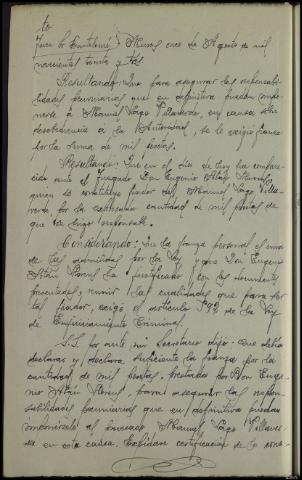 to
Juez Sr. Muros once de Agosto de mil
novecientos treinta y tres.
Resultando: Que para asegurar las responsabi-
lidades pecuniarias que en definitiva puedan impo-
nerse a Manuel Lago Villaverde, en causa sobre
desobediencia a la Autoridad, se le exigió fianza
por la suma de mil pesetas.
Resultando: Que en el dia de hoy ha compare-
cido ante el Juzgado Don Eugenio
quien se constituye fiador del Manuel Lago Villa-
verde, por la expresada cantidad de mil pesetas de
que se hizo responsable.
Considerando: Que la fianza personal es una
de las admitidas por la Ley y que Don Eugenio
ha justificado con los documentos
presentados, reunir las cualidades que para ser
tal fiador, exige el artículo 592 de la Ley
de Enjuiciamiento Criminal.
S.S. por ante mi Secretario dijo: que debia
declarar y declara suficiente la fianza por la
cantidad de mil pesetas, prestada por Don Euge-
nio para asegurar las respon-
sabilidades pecuniarias que en definitiva puedan
imponérsele al procesado Manuel Lago Villaver-
de en esta causa. Expidase certificación de